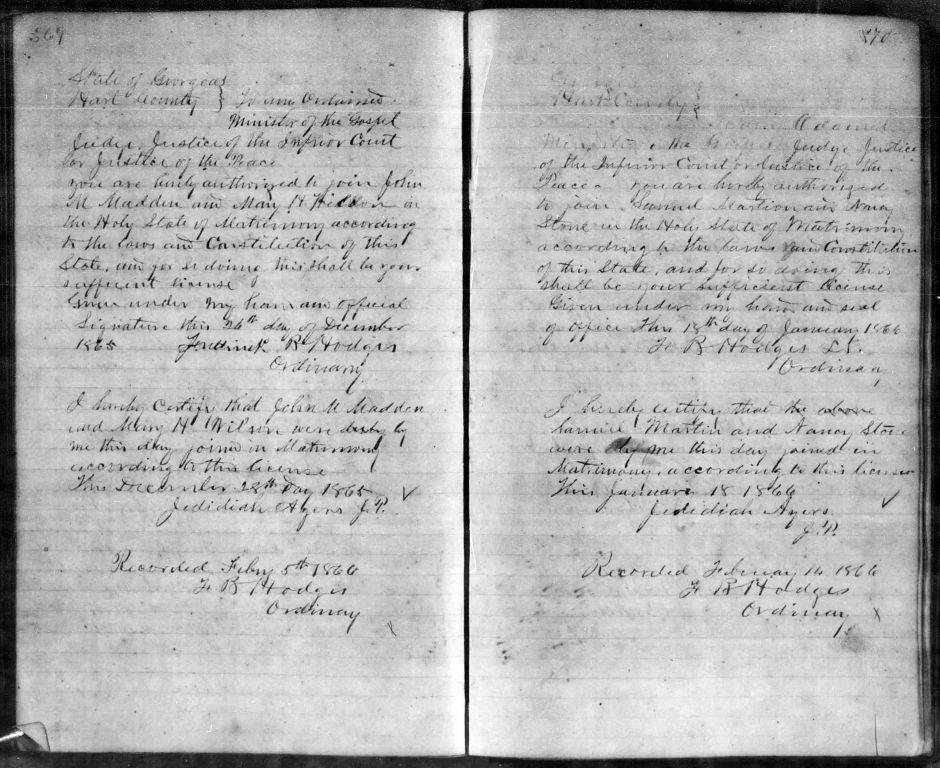 369
State of Georgia
Hart County } To any Ordained
Minister of the Gospel
Judge, Justice of the Inferior Court
or Justice of the Peace
you are hereby authorized to join John
M Madden and Mary H Wilson in
the Holy State of Matrimony according
to the laws and Constitution of this
State, and for so doing this shall be your
sufficient license
Given under my hand and official
Signature this 26th day of December
1865 Frederick B Hodges
Ordinary
I hereby certify that John M Madden
and Mary H Wilson were duly by
me this day joined in Matrimony
according to this license
This December 28th Day 1865
Jedidiah Ayers J.P.
Recorded Feby 5th 1866
F B Hodges
Ordinary
370
Hart County }
Minister of the Judge Justice
of the Inferior Court or Justice of the
Peace you are hereby authorized
to join Samuel Martin and Nancy
Stone in the Holy State of Matrimony
according to the laws and Constitution
of this State, and for so doing this
shall be your sufficient license
Given under my hand and seal
of office This 18th day of January 1866
F B Hodges L.S.
Ordinary
I hereby certify that the above
Samuel Martin and Nancy Stone
were by me this day joined in
Matrimony, according to this license
This January 18 1866
Jedidian Ayers
J.P.
Recorded February 14 1866
F B Hodges
Ordinary